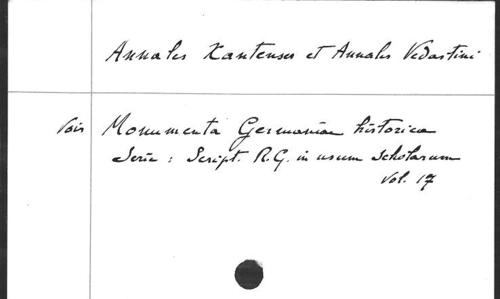 Annales Xantenses et Annales Vedastini
Voir Monumenta Germaniae historica
Serie : Script. R.G. in usum scholarum
Vol. 17